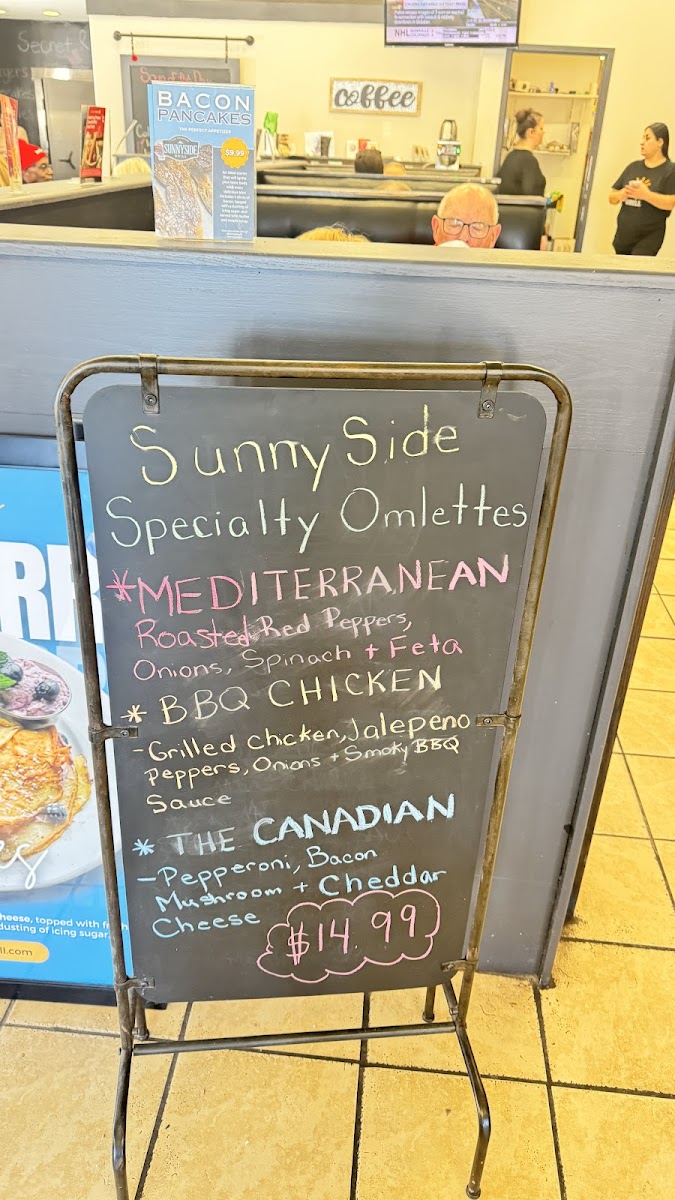 Secret
NHL
coffee
BACON
PANCAKES
THE PERFECT APPETIZER
SUNNYSIDE
$9.99
Sunny Side
Specialty Omlettes
*MEDITERRANEAN
Roasted Red Peppers,
Onions, Spinach + Feta
* BBQ CHICKEN
- Grilled chicken, Jalepeno
Peppers, Onions + Smoky BBQ
Sauce
* THE CANADIAN
- Pepperoni, Bacon
Mushroom + Cheddar
Cheese
$14.99
cheese, topped with
dusting of icing sugar